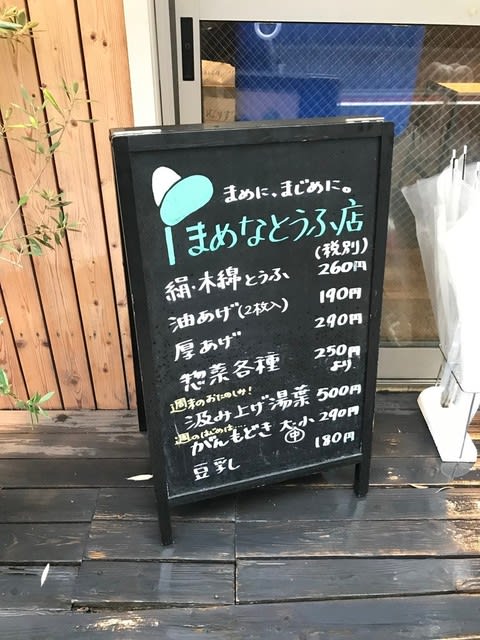 まめに、まじめに。
まめなとうふ店
(税別)
絹・木綿とうふ 260円
油あげ(2枚入) 190円
厚あげ 290円
惣菜各種 250円より
週末のおたのしみ!
汲み上げ湯葉 500円
週のはじめは…
がんもどき 大・小 290円
豆乳 180円